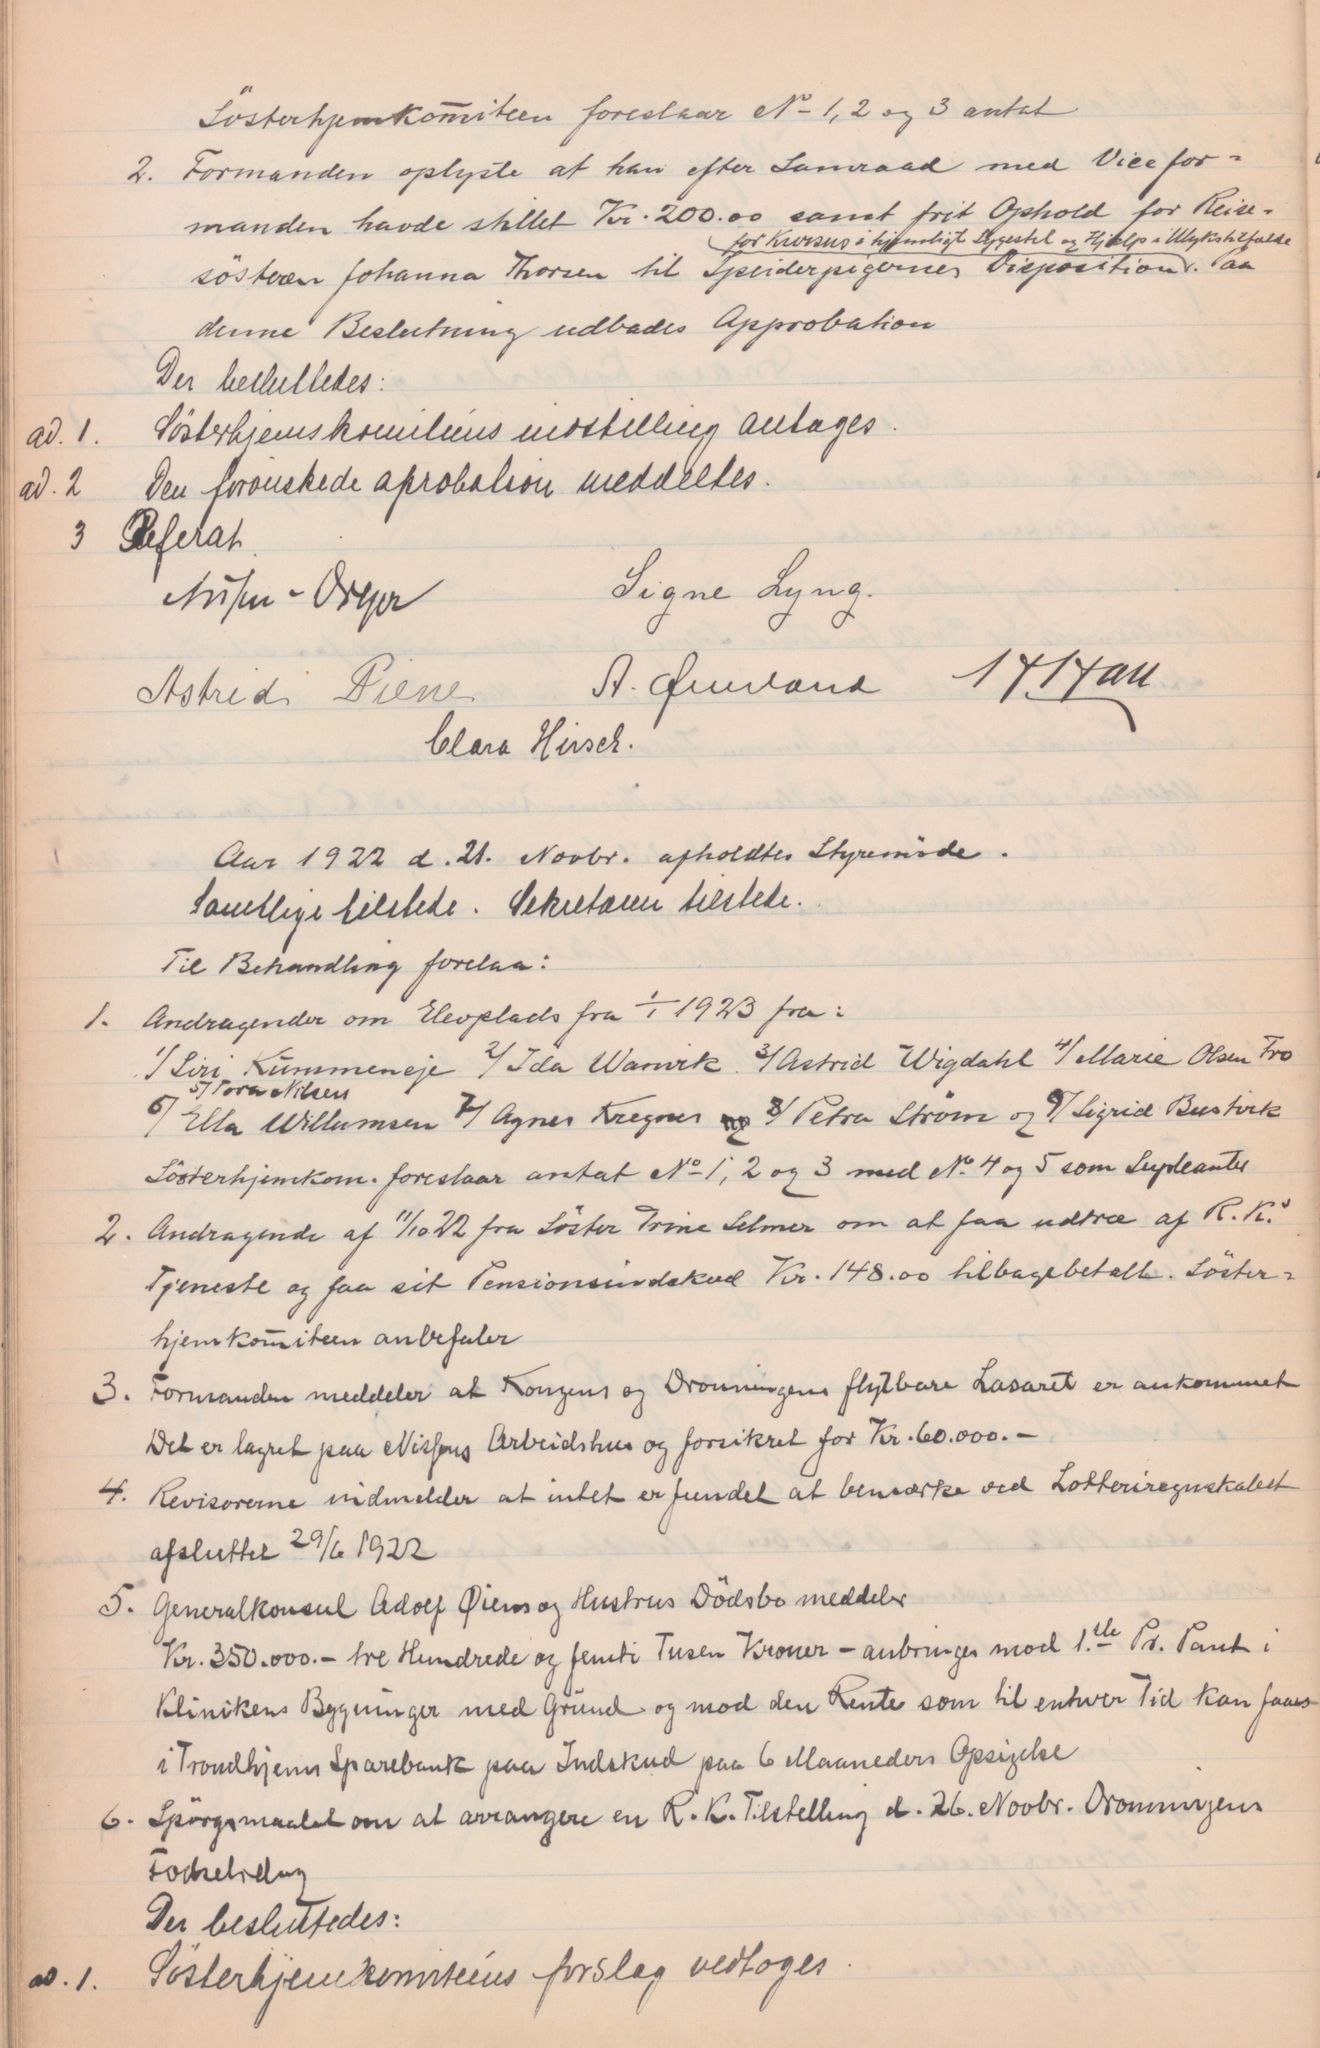 Søsterhjemkom̄iteen foreslaar No 1, 2 og 3 antat
2. Formanden oplyste at han efter Samraad med Vicefor-
manden havde stillet Kr. 200.00 samt frit Ophold for Reise-
for Kursus i hjemligt Sygestel og Hjælp i Ulykstilfælde
søsteren Johanna Thorsen til Speiderpigernes Disposition. Paa
denne Beslutning udbades Approbation
Der besluttedes:
ad. 1. Søsterhjemskomiteens indstilling antages.
ad. 2 Den forønskede aprobation meddeltes.
3 Referat
Signe Lyng.
Astrid Piene
Clara Hirsch.
Aar 1922 d. 21. Novbr. afholdtes Styremøde.
Samtlige tilstede. Sekretæren tilstede.
Til Behandling forelaa:
1. Andragender om Elevplads fra 1/1 1923 fra:
1/ Siri Kummeneje 2/ Ida Warvik 3/ Astrid Wigdahl 4/ Marie Olsen Fro
5/ Tora Nilsen
6/ Ella Willumsen 7/ Agnes Kregnes og 8/ Petra Strøm og 9/ Sigrid Bustvik
Søsterhjemkom. foreslaar antat No 1, 2 og 3 med No. 4 og 5 som Supleanter
2. Andragende af 11/10 22 fra Søster Trine Selmer om at faa udtræ af R.K.s
Tjeneste og faa sit Pensionsindskud Kr. 148.00 tilbagebetalt. Søster-
hjemkom̄iteen anbefaler
3. Formanden meddeler at Kongens og Dronningens flytbare Lasaret er ankommet
Det er lagret paa Nisses Arbeidshus og forsikret for Kr. 60.000.-
4. Revisorerne indmelder at intet er fundet at bemærke ved Lotteriregnskabet
afsluttet 29/6 1922
5. Generalkonsul Adolf Øiens og Hustrus Dødsbo meddeler
Kr. 350.000.- tre Hundrede og femti Tusen Kroner - anbringes mod 1.ste Pr. Pant i
Klinikens Bygninger med Grund og mod den Rente som til enhver Tid kan faaes
i Trondhjems Sparebank paa Indskud paa 6 Maaneders Opsigelse
6. Spørgsmaalet om at arrangere en R.K. Tilstelling d. 26. Novbr. Dronningens
Fødselsdag
Der besluttedes:
ad. 1. Søsterhjemkomiteens forslag vedtoges.